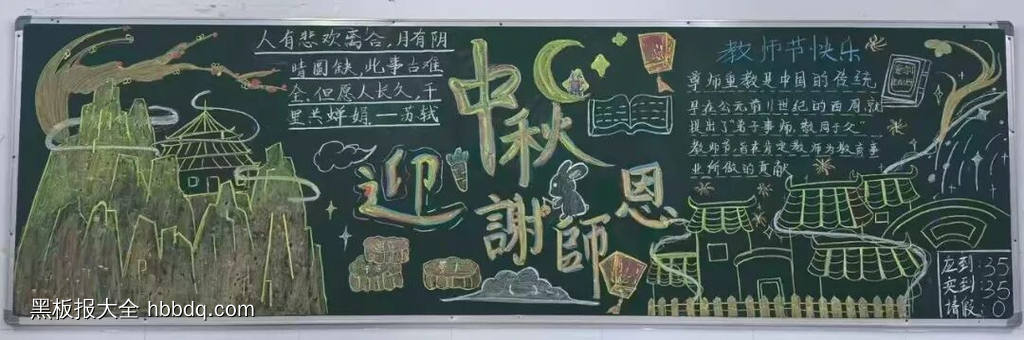 人有悲欢离合,月有阴
晴圆缺,此事古难
全.但愿人长久,千
里共婵娟.—苏轼
中秋
迎
謝師恩
教师节快乐
尊师重教是中国的传统
早在公元前11世纪的西周就
提出了"弟子事师,敬同于父"
教师节,旨在肯定教师为教育事
业所做的贡献
应到:35
实到:35
请假:0
黑板报大全 hbbdq.com